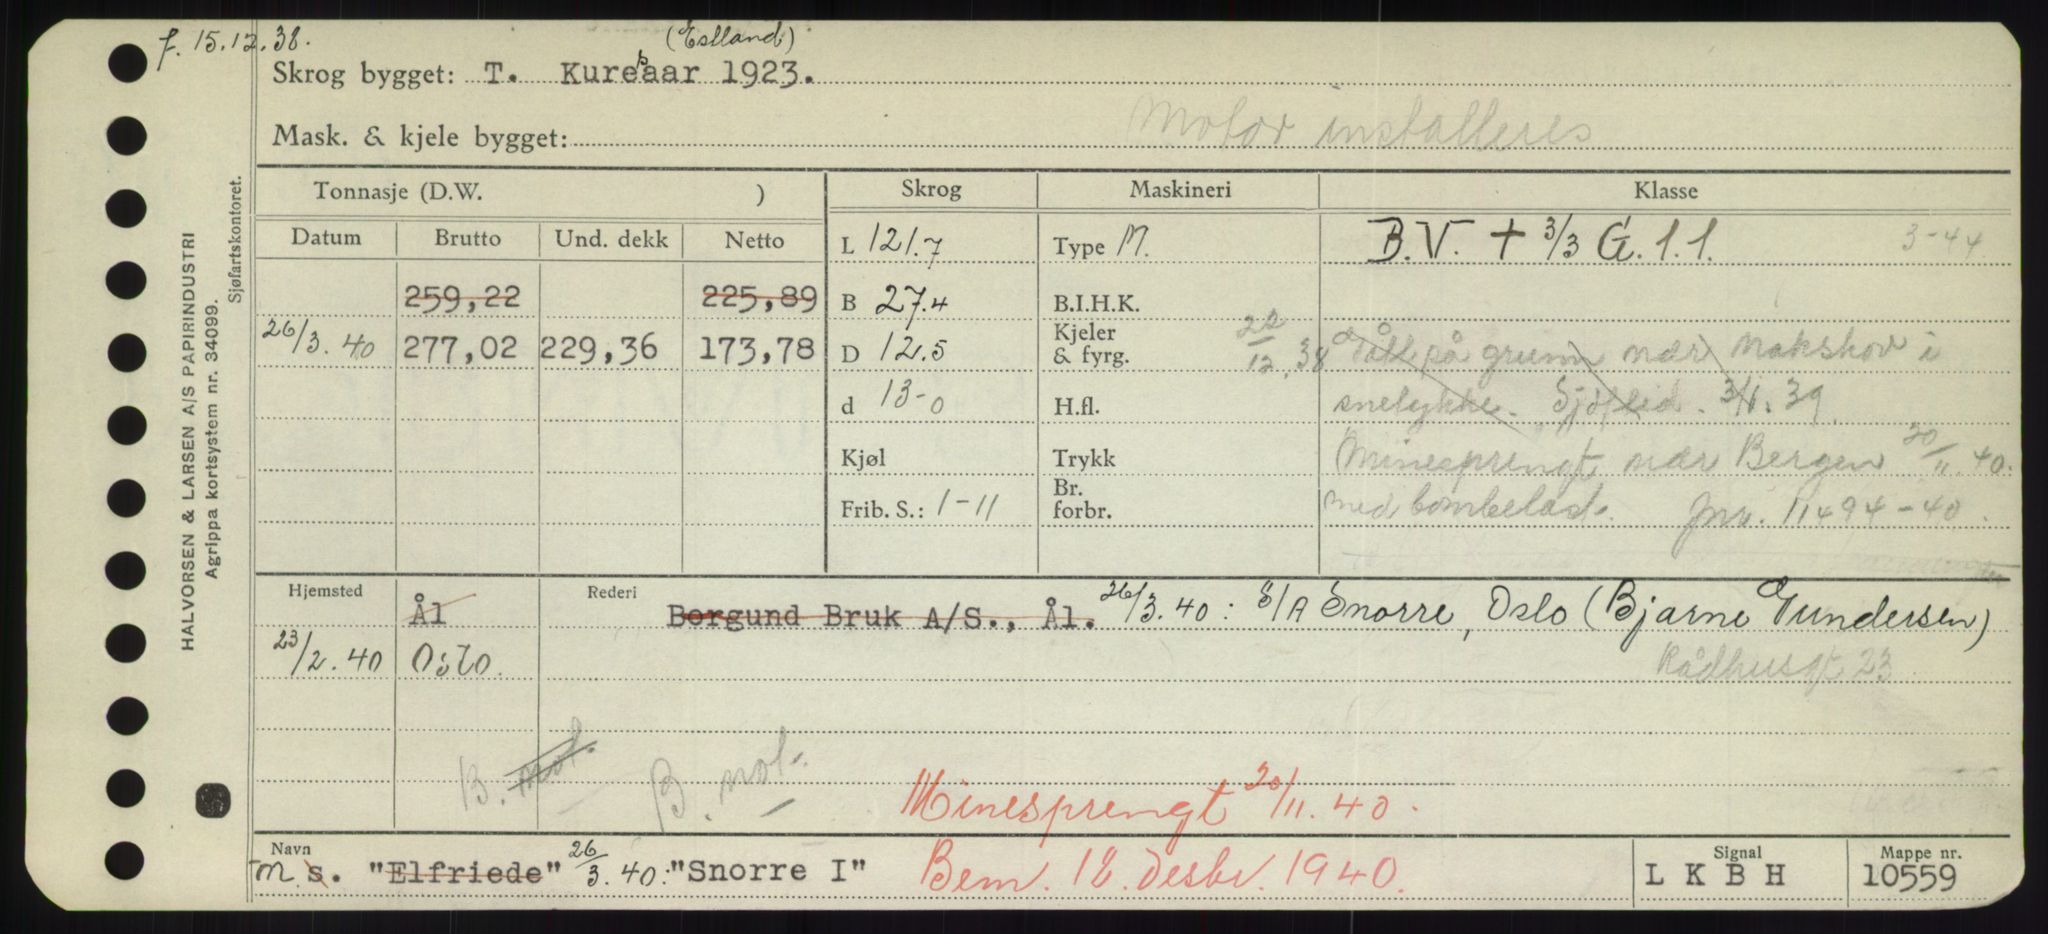 f. 15.12.38.
(Estland)
Skrog bygget: T. Kuresaar 1923.
Mask. & kjele bygget: Motor installeres
Tonnasje (D.W. ) Skrog Maskineri Klasse
Datum Brutto Und. dekk Netto L 121.7 Type M. B.V. + 3/3 G. 1.1. 3-44
259,22 225,89 B 27.4 B.I.H.K.
26/3.40 277,02 229,36 173,78 D 12.5 Kjeler & fyrg. 22/12.38 på grunn nær Nakskov i
d 13-0 H.fl. snetykke. Sjøfled. 3/1.39.
Kjøl Trykk Minesprengt nær Bergen 20/11.40.
Frib. S.: 1-11 Br. forbr. med bombelast. Jnr. 11494-40.
Hjemsted Ål Rederi Borgund Bruk A/S., Ål. 26/3.40: S/A Snorre, Oslo (Bjarne Gundersen)
23/2.40 Oslo. Rådhusgt 23
B. mot. B. mot.
Minesprengt 20/11.40.
Navn Signal Mappe nr.
M s. "Elfriede" 26/3.40: "Snorre I" Bem. 18. desbr. 1940. L K B H 10559
HALVORSEN & LARSEN A/S PAPIRINDUSTRI
Agrippa kortsystem nr. 34099.
Sjøfartskontoret.